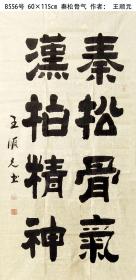 B556号 60×115cm 秦松骨气 作者： 王顺元
秦松骨氣
漢柏精神
王顺元书